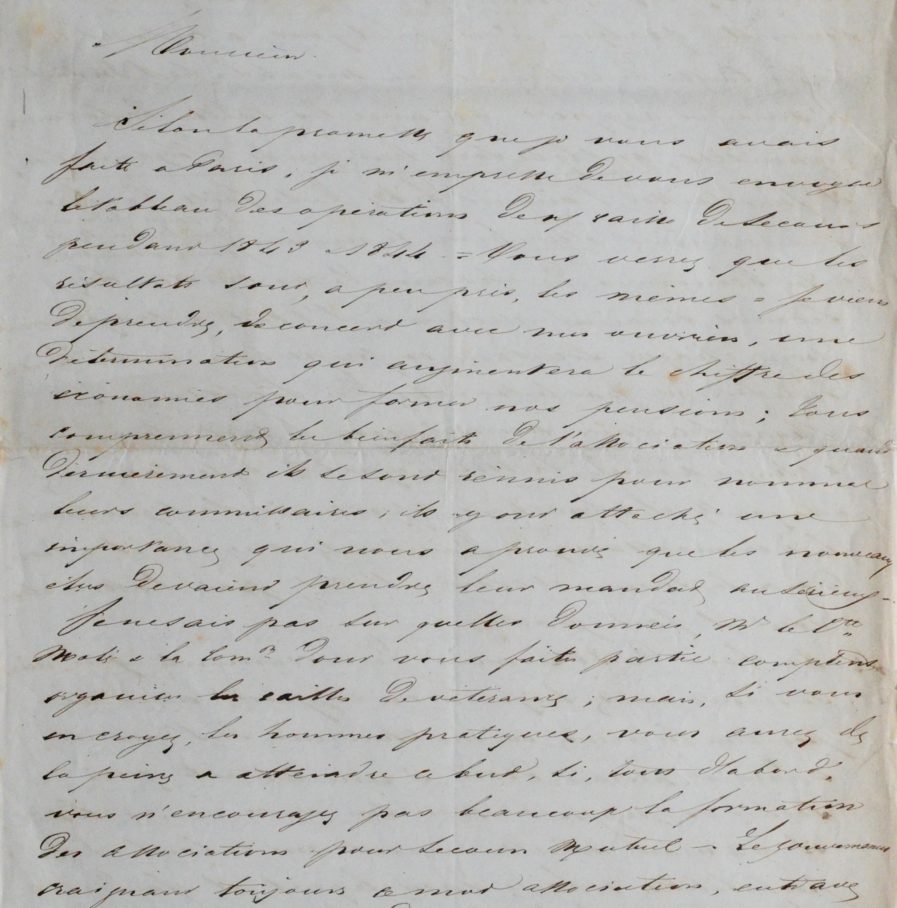 Monsieur
Selon la promesse que je vous avais
faite a Paris, je m'empresse de vous envoyer
le tableau des opérations de ns caisse de secours
pendant 1843 1844 = Vous verrez que les
résultats sont, a peu près, les mêmes = Je viens
de prendre, de concert avec nos ouvriers, une
détermination qui augmentera le chiffre des
économies pour former nos pensions; tous
comprennent les bienfaits de l'association & quand
dernièrement ils se sont réunis pour nommer
leurs commissaires, ils y ont attaché une
importance qui nous a prouvé que les nouveaux
élus devaient prendre leur mandat au sérieux =
Je ne sais pas sur quelles données, Mr le Cte
Molé & la Comon dont vous faites partie comptent
organiser les caisses de vétérance; mais, si vous
en croyez, les hommes pratiques, vous aurez de
la peine a atteindre ce but, si, tout d'abord,
vous n'encouragez pas beaucoup la formation
des associations pour secours Mutuel = Le gouvernement
craignant toujours ce mot association, entrave